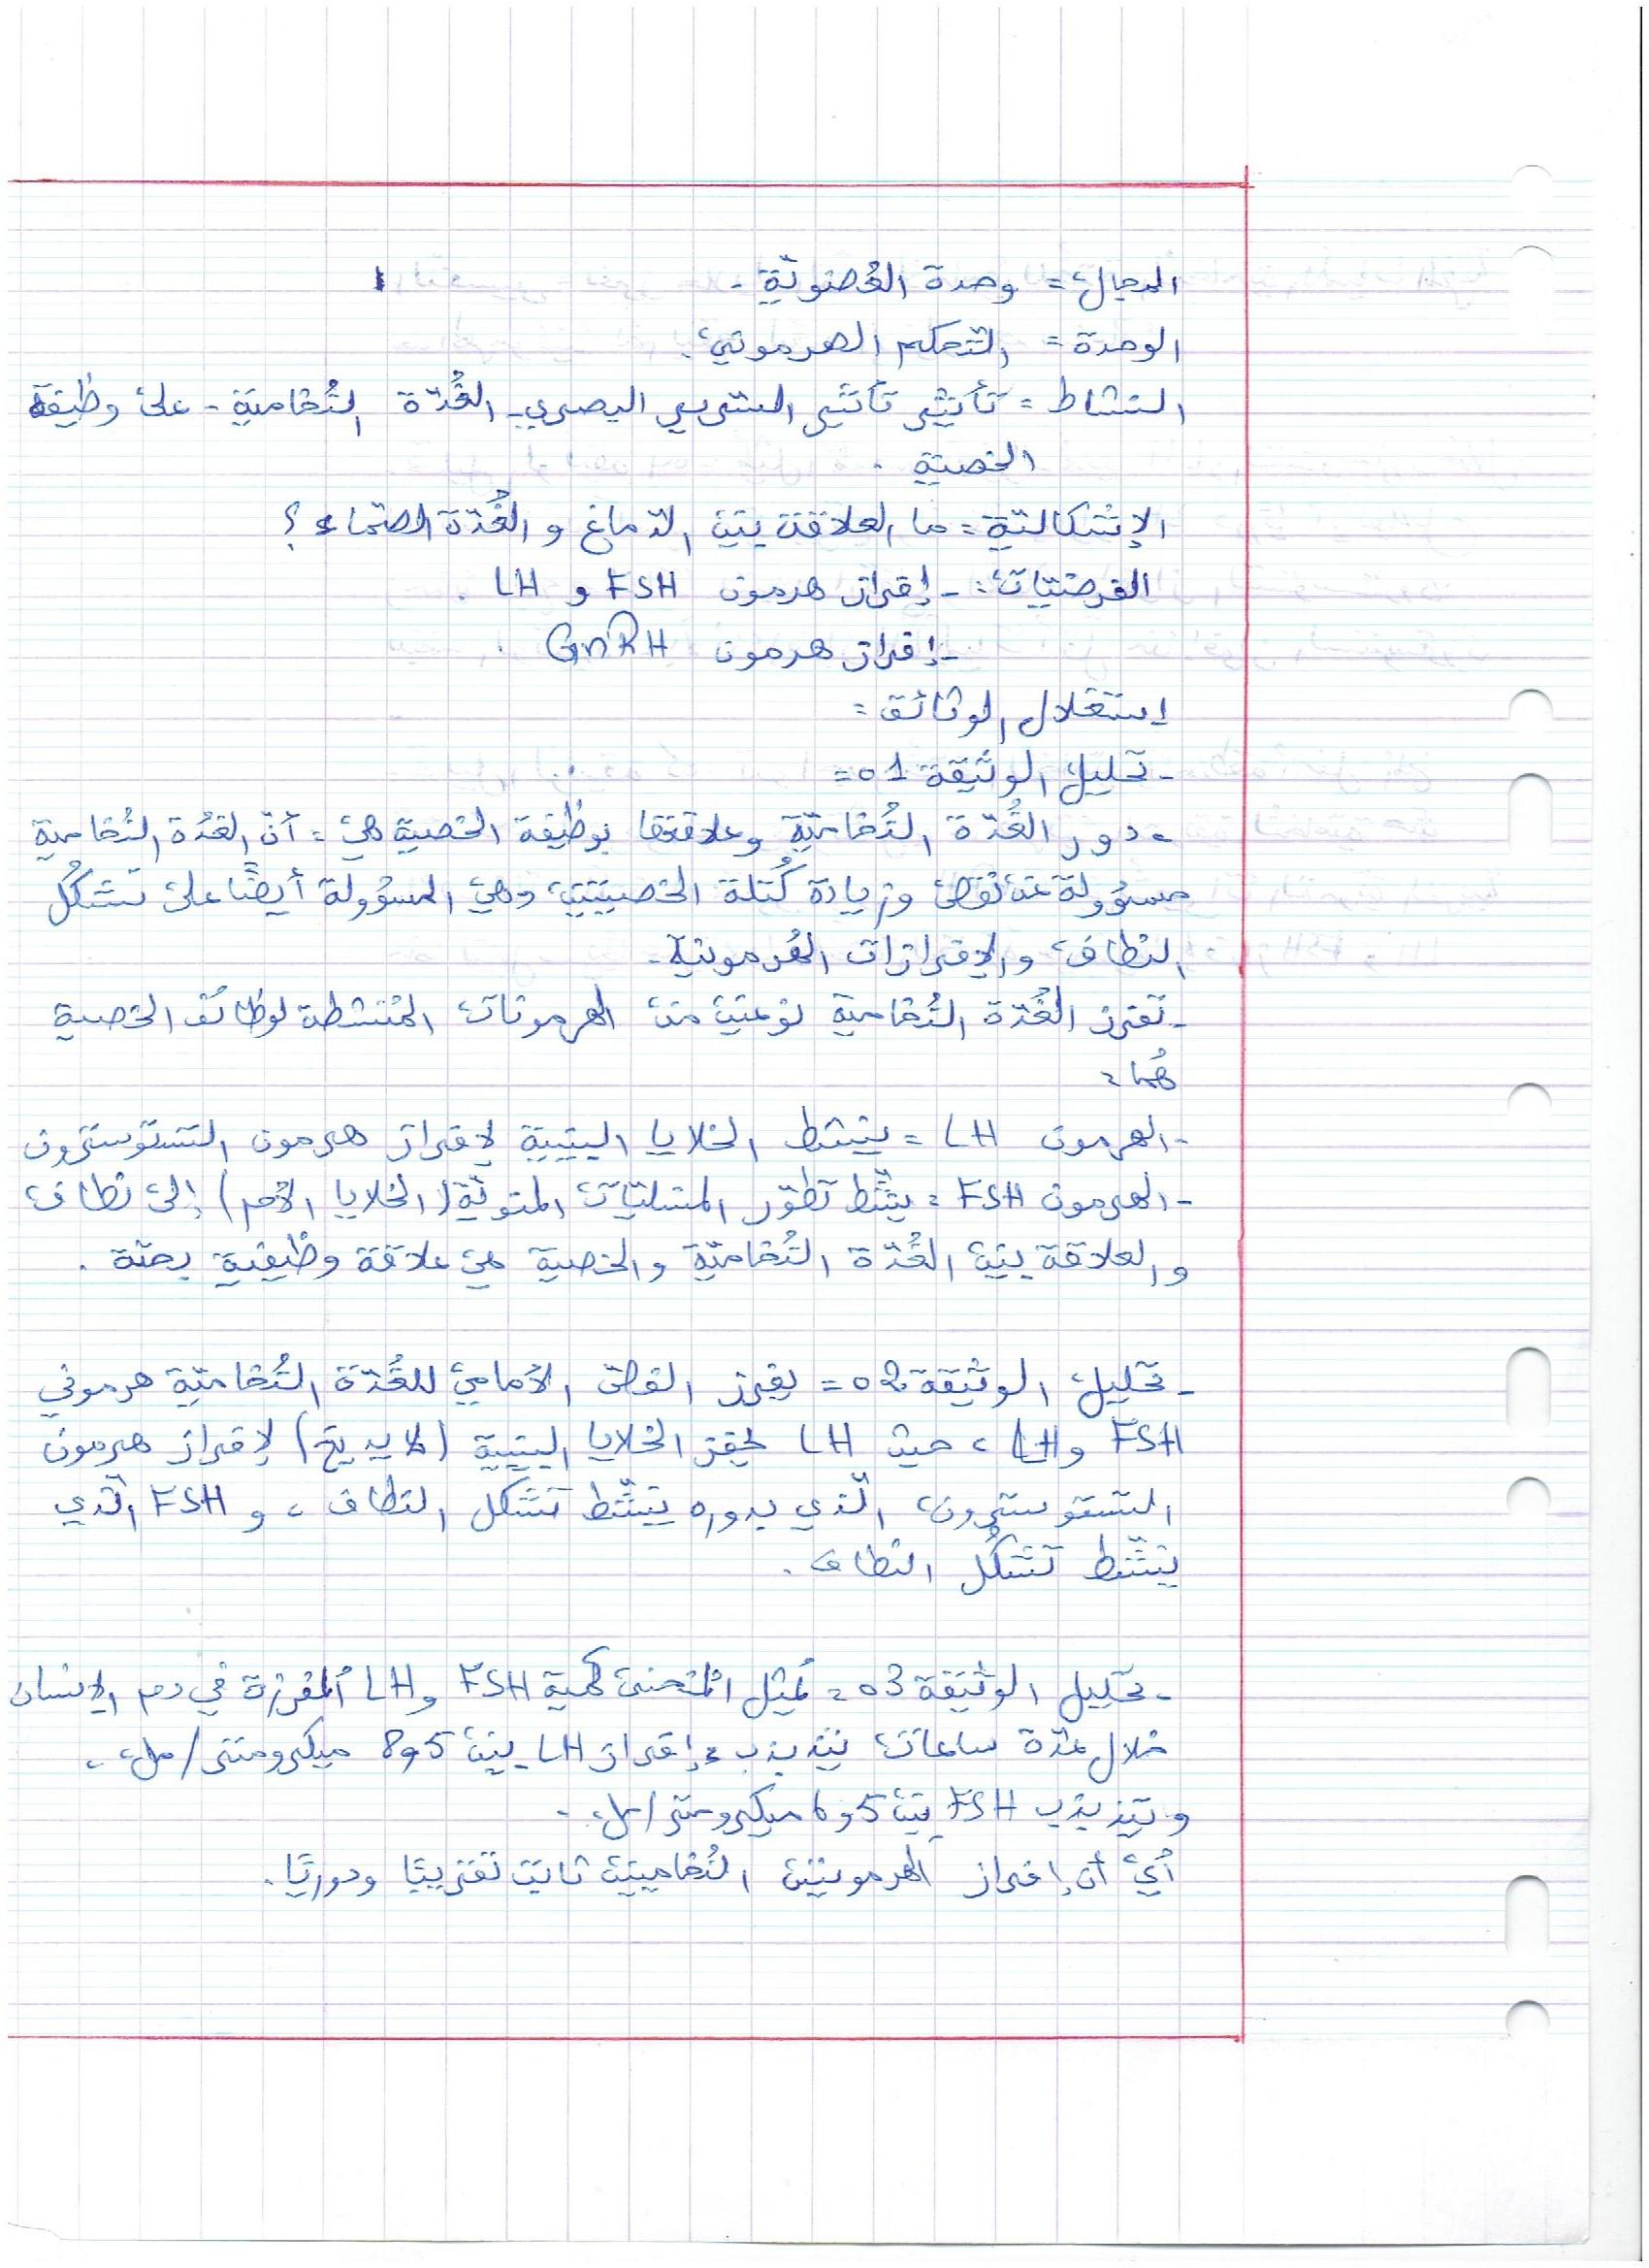 المجال = وحدة العُضويّة.
الوحدة = التحكم الهرموني.
النشاط = تأثير تأثير السرير البصري - الغُدّة النُخامية - على وظيفة
الخصية.
الإشكالية = ما العلاقة بين الدماغ و الغُدّة الصمّاء ؟
الفرضيات: - إفراز هرمون FSH و LH .
- إفراز هرمون GnRH .
إستغلال الوثائق =
- تحليل الوثيقة 01 =
- دور الغُدّة النُخاميّة وعلاقتها بوظيفة الخصية هي : أنّ الغدُة النُخامية
مسؤولة عن نقص وزيادة كُتلة الخصيتين وهي المسؤولة أيضًا على تشكُل
النطاف والإفرازات الهُرمونية.
- تفرز الغُدّة النُخامية نوعين من الهرمونات المنشطة لوظائف الخصية
هُما :
- الهرمون LH = ينشط الخلايا البينية لإفراز هرمون التستوسترون
- الهرمون FSH : ينشّط تطوّر المنسليّات المنويّة (الخلايا الأم) إلى نطاف
والعلاقة بين الغُدّة النُخاميّة والخصية هي علاقة وظيفية بحتة .
- تحليل الوثيقة 02 = يفرز الفص الأمامي للغُدّة النُخاميّة هرموني
FSH و LH ، حيث LH يحفز الخلايا البينية (لايديغ) لإفراز هرمون
التستوسترون، الّذي بدوره ينشّط تشكل النطاف ، و FSH الّذي
ينشّط تشكُل النطاف .
- تحليل الوثيقة 03 : يُمثل المُنحنى كمية FSH و LH المُفرزة في دم الإنسان
خلال عدّة ساعات يتذبذب إفراز LH بين 5 و 8 ميكرومتر/مل ،
و يتذبذب FSH بين 5 و 6 ميكرومتر/مل .
أي أن إفراز الهرمونين النُخاميين ثابت تقريبًا ودوريًا.